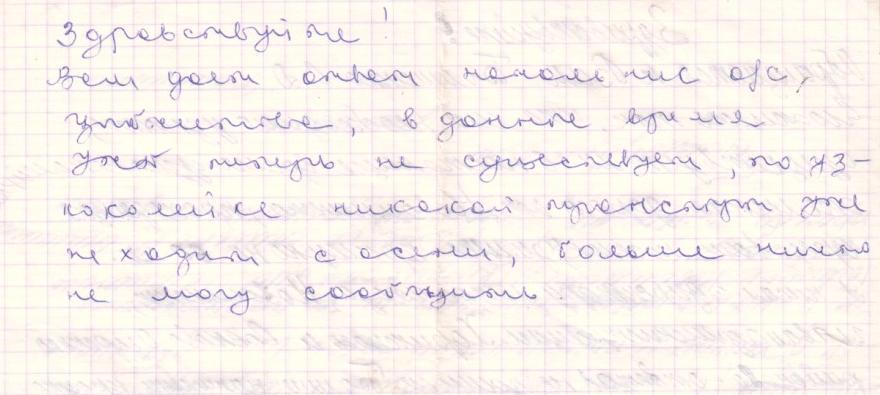 Здравствуйте!
Вам дает ответ начальник
в данное время
теперь не существует, по уз-
коколейке никакой транспорт уже
не ходит с осени, больше ничего
не могу сообщить.